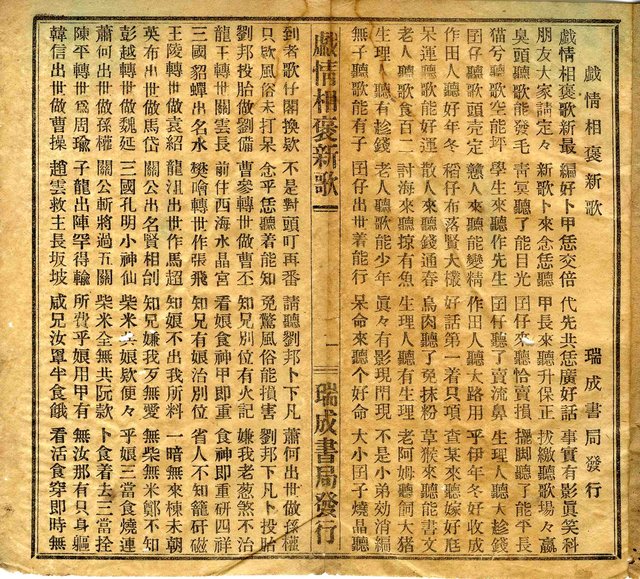 戲情相褒新歌　瑞成書局發行
戲情相褒歌新最　編好卜甲恁交倍　代先共恁廣好話　事實有影眞笑科
朋友大家請定々　新歌卜來念恁聽　甲長來聽升保正　拔繳聽歌塲々贏
臭頭聽歌能發毛　靑冥聽了能目光　囝仔來聽恰賣損　擺脚聽了能平長
猫兮聽歌空能坪　學生來聽作先生　囝仔聽了賣流鼻　生理人聽大趁錢
囝仔聽歌頭壳定　戇人來聽能變精　作田人聽大路用　乎伊年冬好收成
作田人聽好年冬　稻仔布落賢大欉　好話第一着只項　查某來聽嫁好尫
呆運聽歌能好運　散人來聽錢通春　烏肉聽了免抹粉　草猴來聽能書文
老人聽歌食百二　討海來聽掠有魚　生理人聽有生理　老阿姆聽飼大猪
生理人聽有趁錢　老人聽歌能少年　眞々有影現問現　不是小弟効消編
無子聽歌能有子　囝仔出世着能行　呆命來聽个好命　大小囝子燒品聽
戲情相褒新歌　一　瑞成書局發行
到者歌仔閣換欵　不是對頭叮再番　請聽劉邦卜下凡　蕭何出世做孫權
只欵風俗未打呆　念乎恁聽着能知　免驚風俗能損害　劉邦下凡卜投胎
劉邦投胎做劉備　曹參轉世做曹丕　知兄別位有火記　嫌我老慾煞不治
龍王轉世關雲長　前住西海水晶宮　看娘食神甲即重　食神即重研四祥
三國貂蟬出名水　樊噲轉世作張飛　知兄有娘治別位　省人不知籠研磁
王陵轉世做袁紹　龍沮出世作馬超　知娘不出我所料　一暗無來棟未朝
英布出世做馬岱　關公出名賢相刣　知兄嫌我歹無愛　無柴無米鄭不知
彭越轉世做魏延　三國孔明小神仙　柴米共娘欵便々　乎娘三當食燒連
蕭何出世做孫權　關公斬將過五關　柴米全無共阮款　卜食着去三當拴
陳平轉世爲周瑜　子龍出陣罕得輸　所費乎娘用甲有　無汝那有只身軀
韓信出世做曹操　趙雲救主長坂坡　咸兄汝罩半食餓　看活食穿即時無